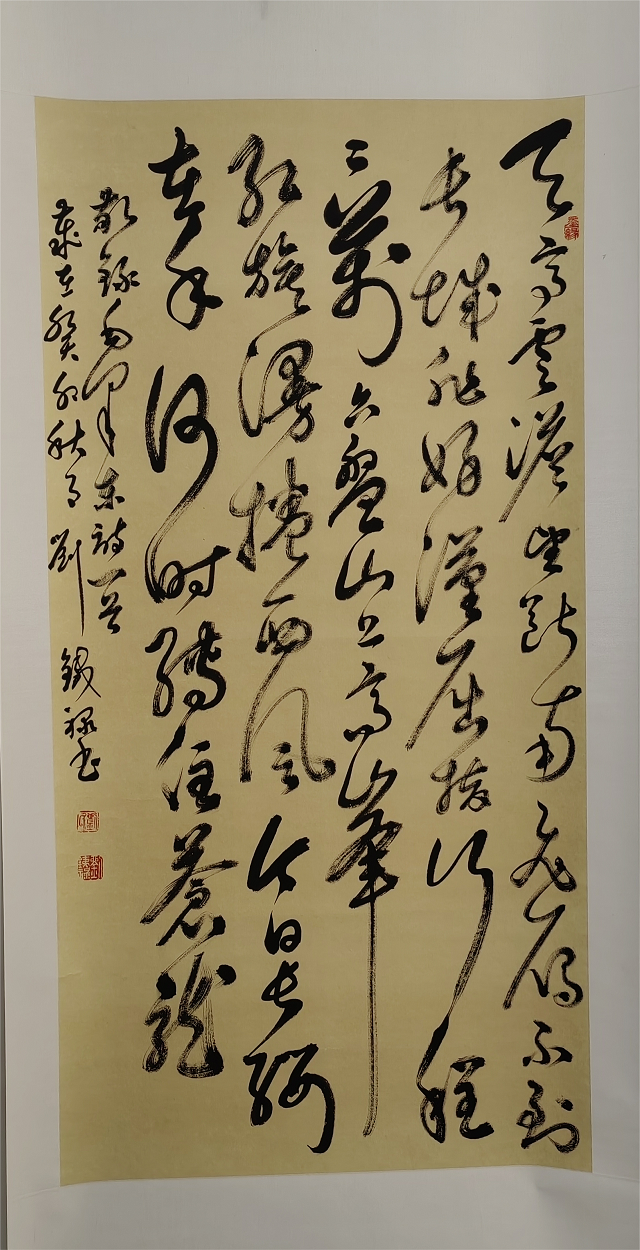 天高雲淡望斷南飛雁不到
长城非好漢屈指行程
二萬六盤山上高峯
红旗漫捲西風今日长缨
在手何时縛住蒼龍
敬録毛泽东詩一首
歲在癸卯秋月劉鐵书